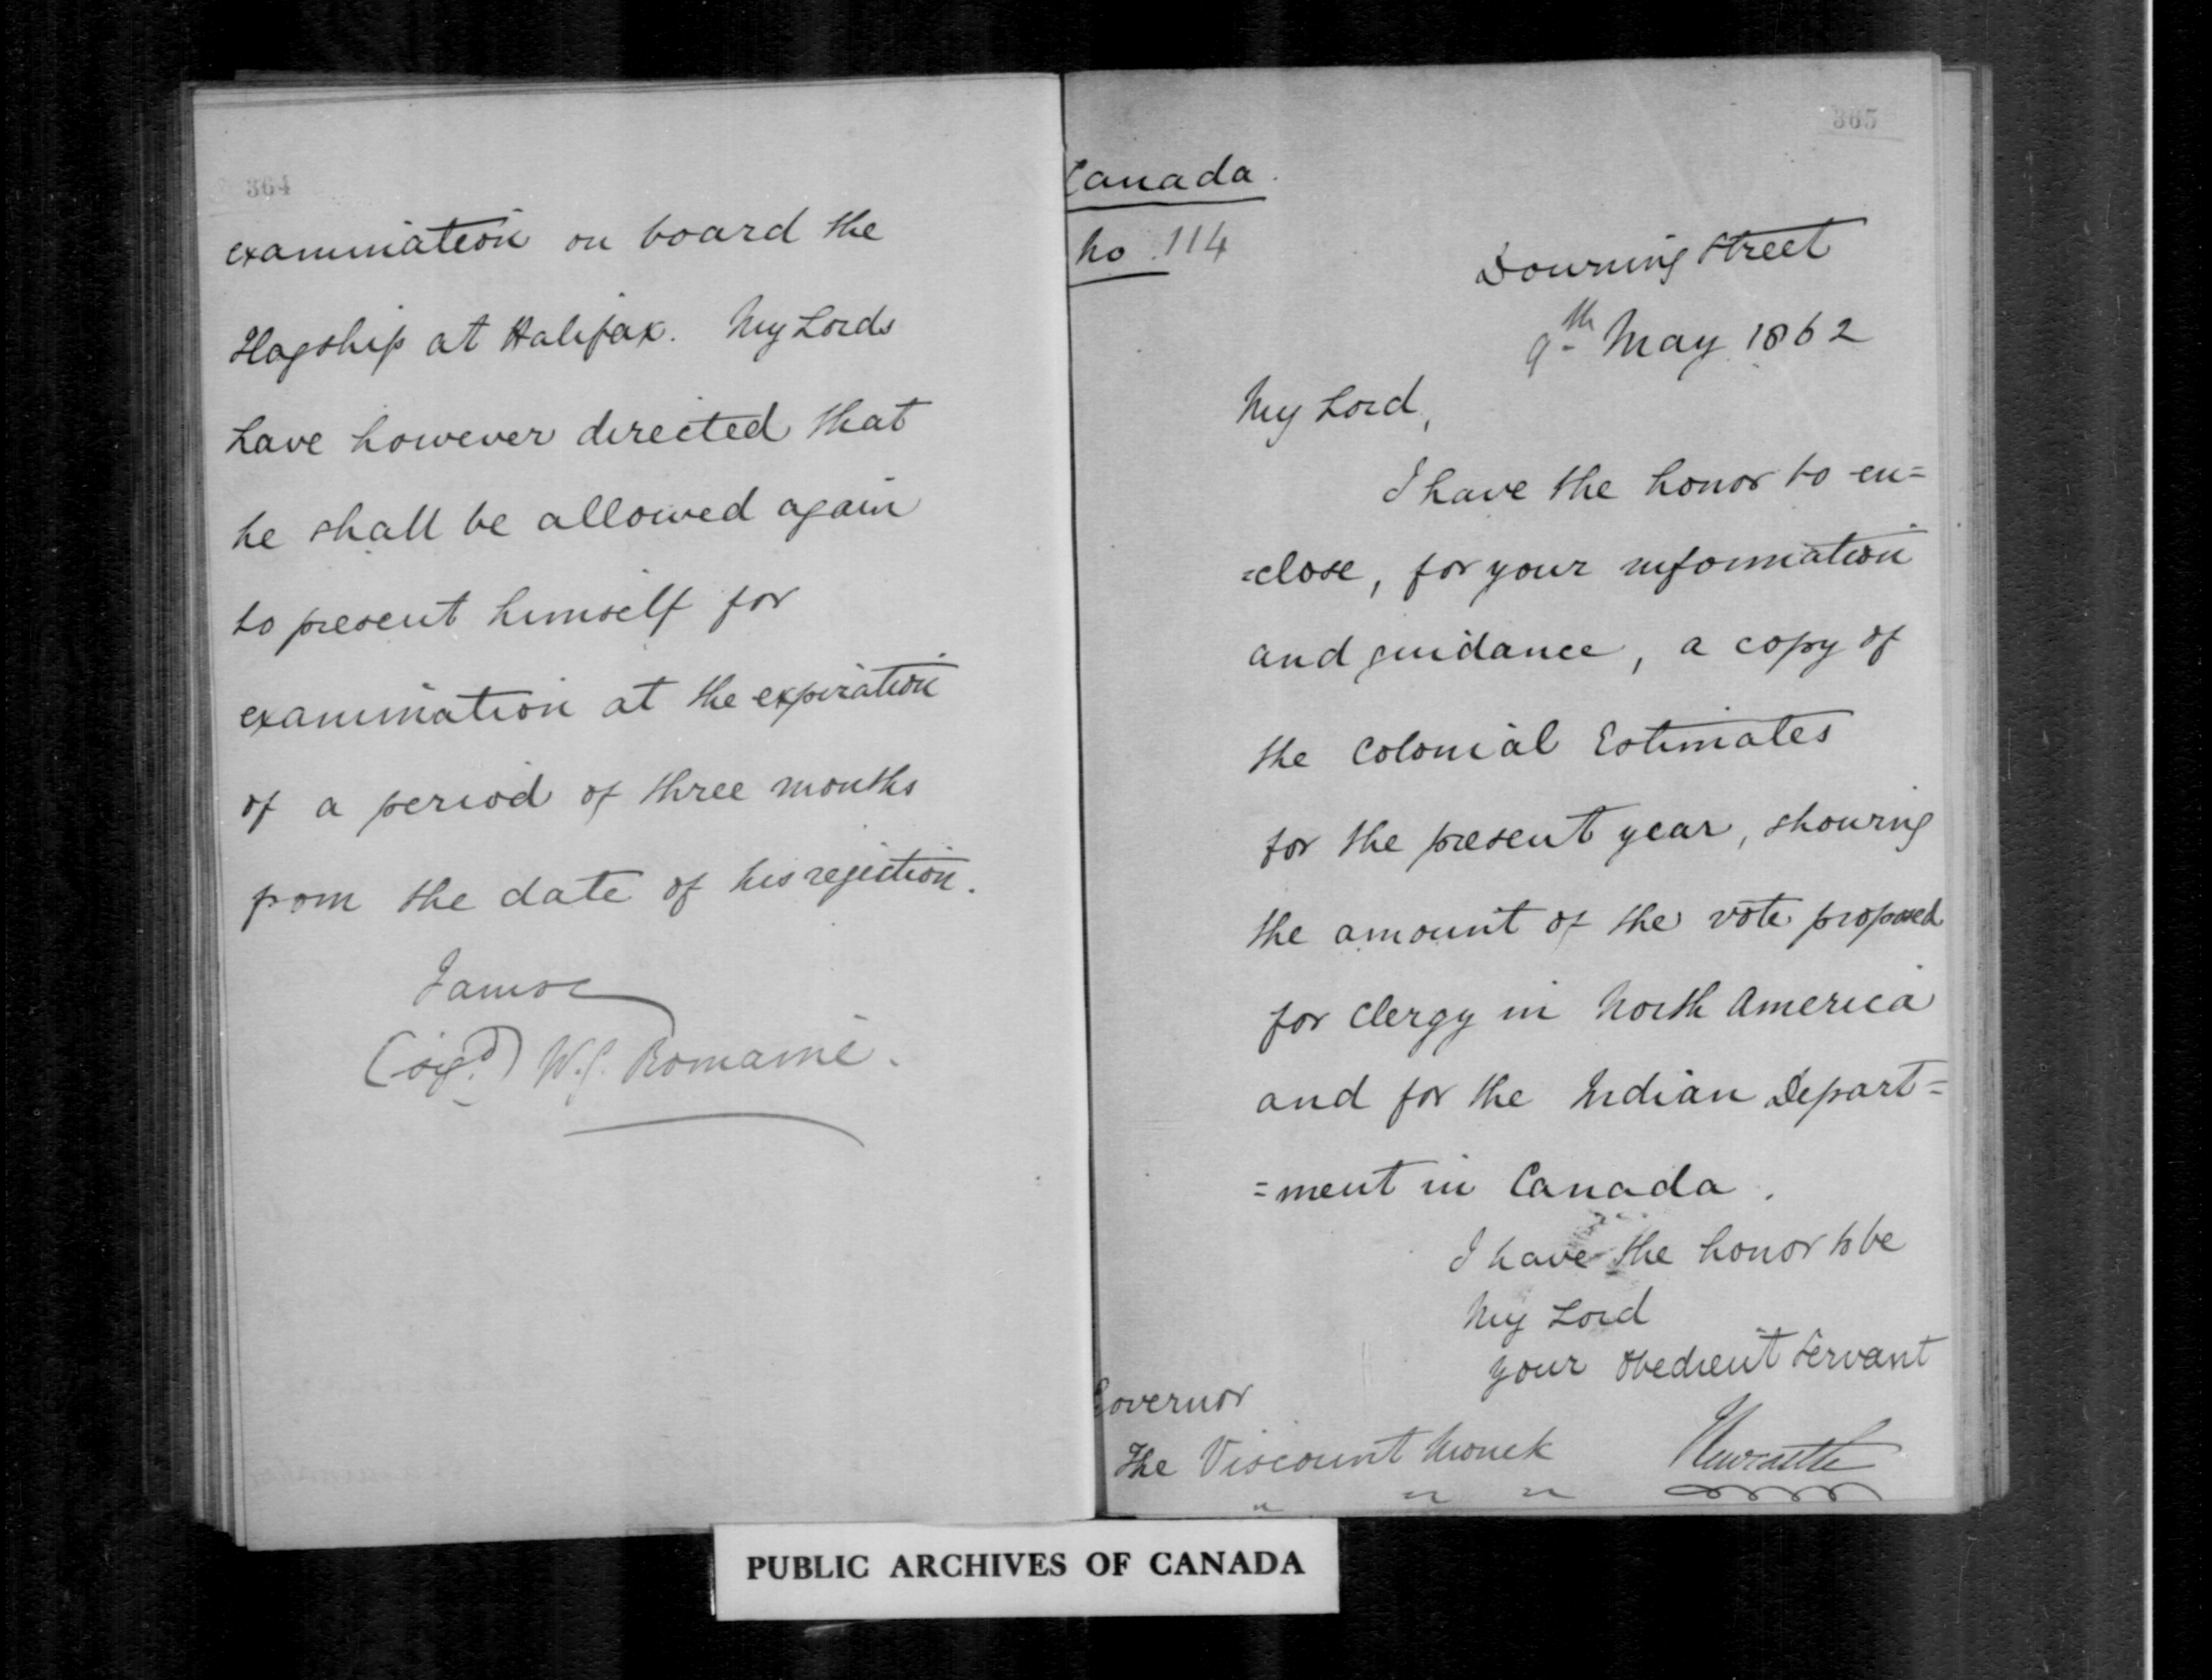 364
examination on board the
Flagship at Halifax. My Lords
have however directed that
he shall be allowed again
to present himself for
examination at the expiration
of a period of three months
from the date of his rejection.
I am &c
(sigd.) W.G. Romaine.
365
Canada.
No. 114
Downing Street
9th May 1862
My Lord,
I have the honor to en=
=close, for your information
and guidance, a copy of
the Colonial Estimates
for the present year, showing
the amount of the vote proposed
for Clergy in North America
and for the Indian Depart=
=ment in Canada.
I have the honor to be
My Lord
Your obedient Servant
Newcastle
Governor
The Viscount Monck
" " "
PUBLIC ARCHIVES OF CANADA